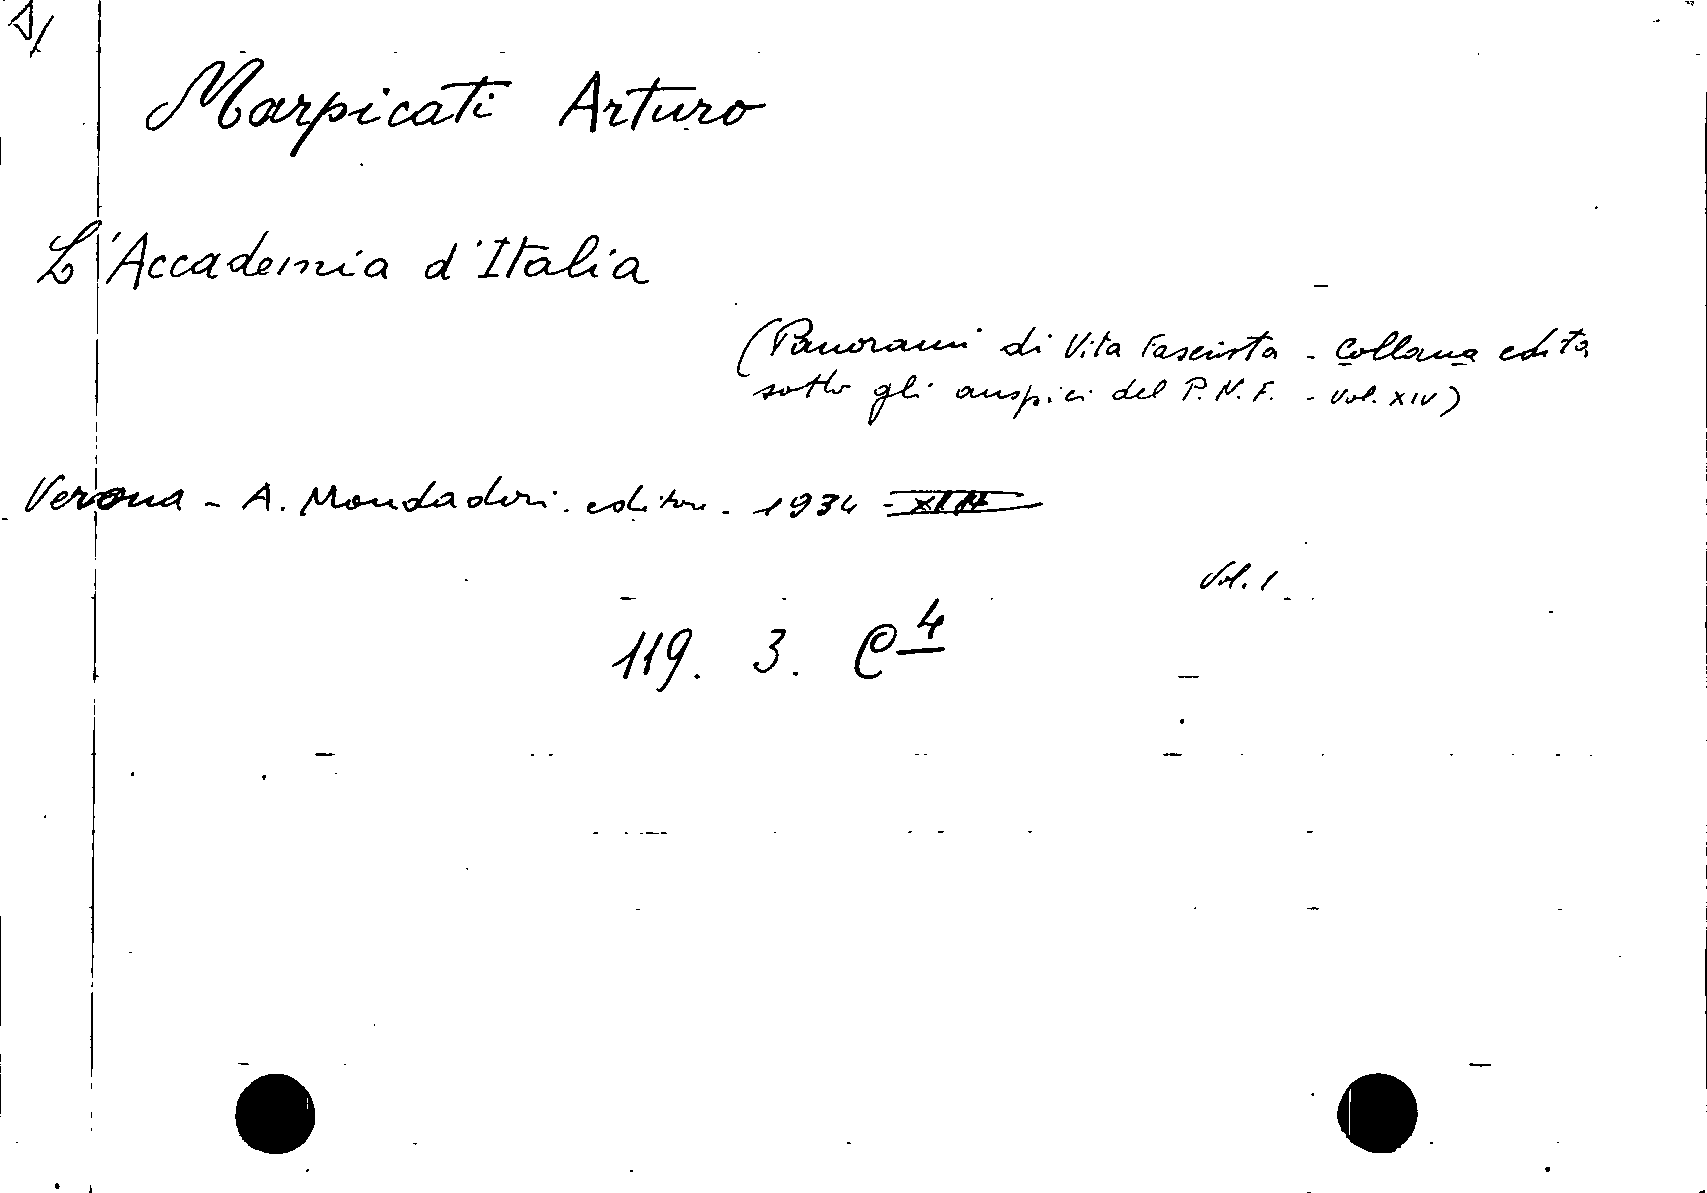 Marpicati Arturo
L'Accademia d'Italia
(Panorami di Vita Fascista - Collana edita
sotto gli auspici del P.N.F. - vol. XIV)
Verona - A. Mondadori. editore - 1934
Vol. 1
119. 3. C 4